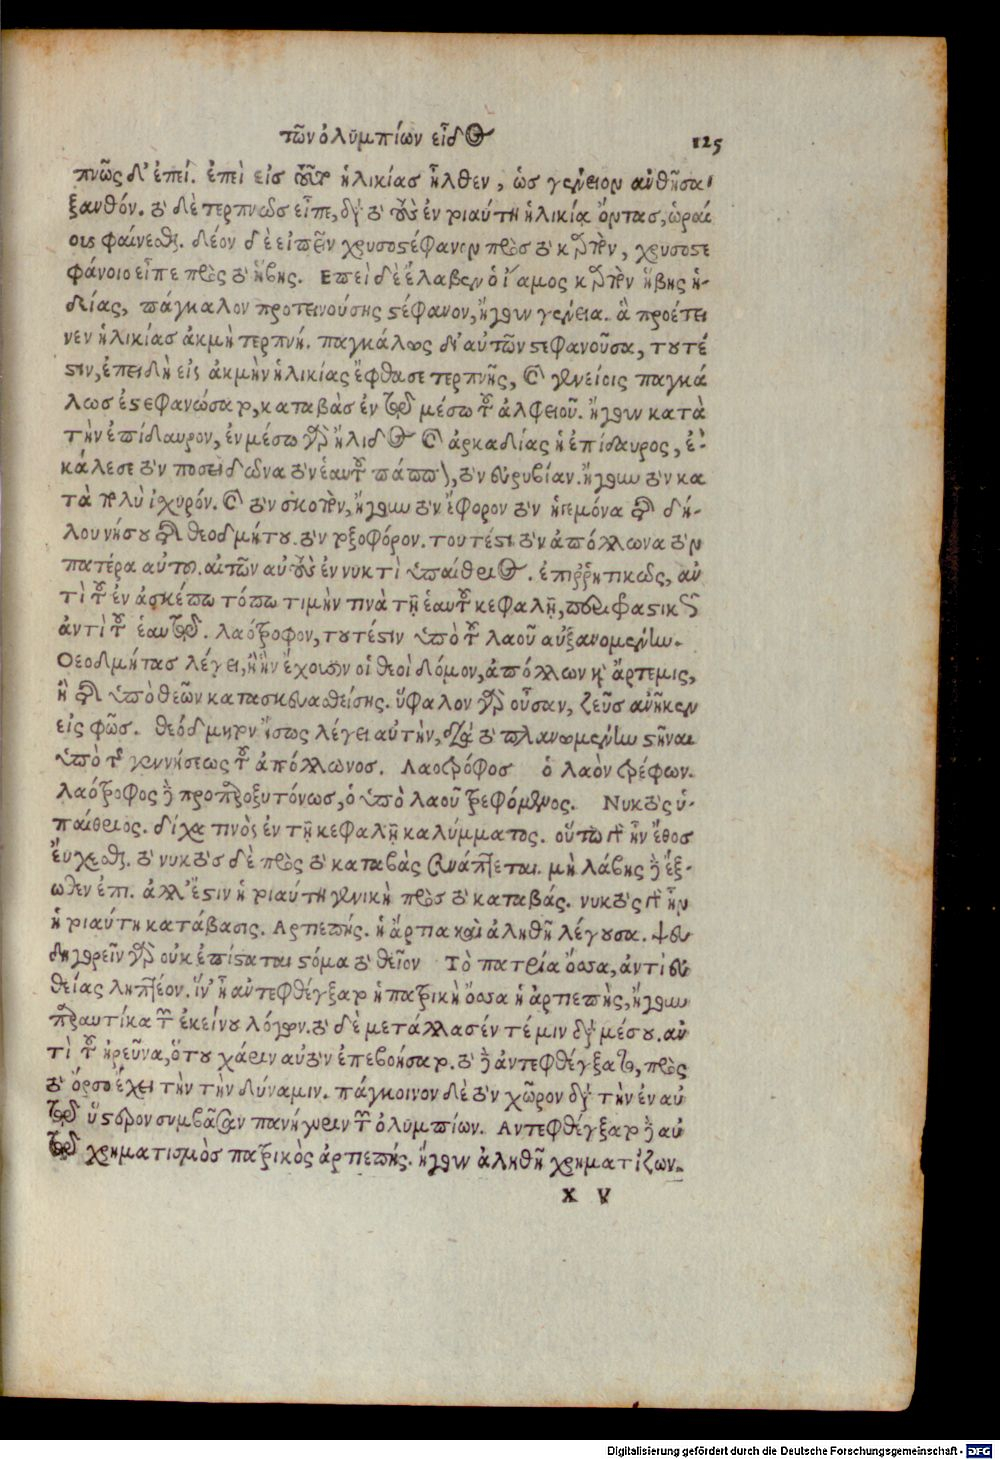 τῶν ὀλυμπίων εἶδος 125
πνῶς δ' ἐπεί. ἐπεὶ εἰς τοῦτο ἡλικίας ἦλθεν, ὡς γένειον ἀνθῆσαι
ξανθόν. τὸ δὲ τερπνῶς εἶπε, διὰ τὸ τοὺς ἐν τοιαύτῃ ἡλικίᾳ ὄντας, ὡραί
οις φαίνεσθαι. δέον δὲ εἰπεῖν χρυσοστέφανον πρὸς τὸ καρπὸν, χρυσοστε
φάνοιο εἶπε πρὸς τὸ ἥβης. Επεὶ δὲ ἔλαβεν ὁ ἴαμος καρπὸν ἥβης ἡ-
δείας, πάγκαλον προτεινούσης στέφανον, ἤγουν γένεια. ἃ προέτει
νεν ἡλικίας ἀκμὴ τερπνή. παγκάλως δι' αὐτῶν στεφανοῦσα, τουτέ
στιν, ἐπειδὴ εἰς ἀκμὴν ἡλικίας ἔφθασε τερπνῆς, καὶ γενείοις παγκά
λως ἐστεφανώσατο, καταβὰς ἐν τῷ μέσῳ τοῦ ἀλφειοῦ. ἤγουν κατὰ
τὴν ἐπίδαυρον, ἐν μέσῳ γὰρ ἤλιδος καὶ ἀρκαδίας ἡ ἐπίδαυρος, ἐ-
κάλεσε τὸν ποσειδῶνα τὸν ἑαυτοῦ πάππον, τὸν εὐρυβίαν. ἤγουν τὸν κα
τὰ πολὺ ἰσχυρόν. καὶ τὸν σκοπὸν, ἤγουν τὸν ἔφορον τὸν ἡγεμόνα τῆς δή-
λου νήσου τῆς θεοδμήτου. τὸν τοξοφόρον. τουτέστι τὸν ἀπόλλωνα τὸν
πατέρα αὐτοῦ. αἰτῶν αὐτοὺς ἐν νυκτὶ ὑπαίθριος. ἐπιῤῥητικῶς, ἀν
τὶ τοῦ ἐν ἀσκέπῳ τόπῳ τιμὴν τινὰ τῇ ἑαυτοῦ κεφαλῇ, περιφραστικῶς
ἀντὶ τοῦ ἑαυτῷ. λαότροφον, τουτέστιν ὑπὸ τοῦ λαοῦ αὐξανομένην.
Θεοδμήτας λέγει, ἢ ἣν ἔχουσιν οἱ θεοὶ δόμον, ἀπόλλων καὶ ἄρτεμις,
ἢ τῆς ὑπὸ θεῶν κατασκευασθείσης. ὕφαλον γὰρ οὖσαν, ζεῦς ἀνῆκεν
εἰς φῶς. θεόδμητον ἴσως λέγει αὐτὴν, διὰ τὸ πλανωμένην στῆναι
ὑπὸ τῆς γεννήσεως τοῦ ἀπόλλωνος. Λαοτρόφος ὁ λαὸν τρέφων.
λαότροφος δὲ προπαροξυτόνως, ὁ ὑπὸ λαοῦ τρεφόμενος. Νυκτὸς ὑ-
παίθριος. δίχα τινὸς ἐν τῇ κεφαλῇ καλύμματος. οὕτω γὰρ ἦν ἔθος
εὔχεσθαι. τὸ νυκτὸς δὲ πρὸς τὸ καταβὰς συνάπτεται. μὴ λάβῃς δὲ ἔξ-
ωθεν ἐπι. ἀλλ' ἔστιν ἡ τοιαύτη γενικὴ πρὸς τὸ καταβάς. νυκτὸς γὰρ ἦν
ἡ τοιαύτη κατάβασις. Αρτιεπής. ἡ ἄρτια καὶ ἀληθῆ λέγουσα. ψευ
δηγορεῖν γὰρ οὐκ ἐπίσταται στόμα τὸ θεῖον Τὸ πατρία ὄσσα, ἀντὶ εὐ
θείας ληπτέον. ἵν' ᾖ ἀντεφθέγξατο ἡ πατρικὴ ὄσσα ἡ ἀρτιεπὴς, ἤγουν
παραυτίκα τὸν ἐκείνου λόγον. τὸ δὲ μετάλλασέν τέ μιν διὰ μέσου. ἀν
τὶ τοῦ ἠρεύνα, ὅτου χάριν αὐτὸν ἐπεβοήσατο. τὸ δὲ ἀντεφθέγξατο, πρὸς
τὸ ὄρσο ἔχει τὴν τὴν δύναμιν. πάγκοινον δὲ τὸν χῶρον διὰ τὴν ἐν αὐ
τῷ ὕστερον συμβᾶσαν πανήγυριν τῶν ὀλυμπίων. Αντεφθέγξατο δὲ αὐ
τῷ χρηματισμὸς πατρικὸς ἀρτιεπής. ἤγουν ἀληθῆ χρηματίζων.
x v
Digitalisierung gefördert durch die Deutsche Forschungsgemeinschaft - DFG